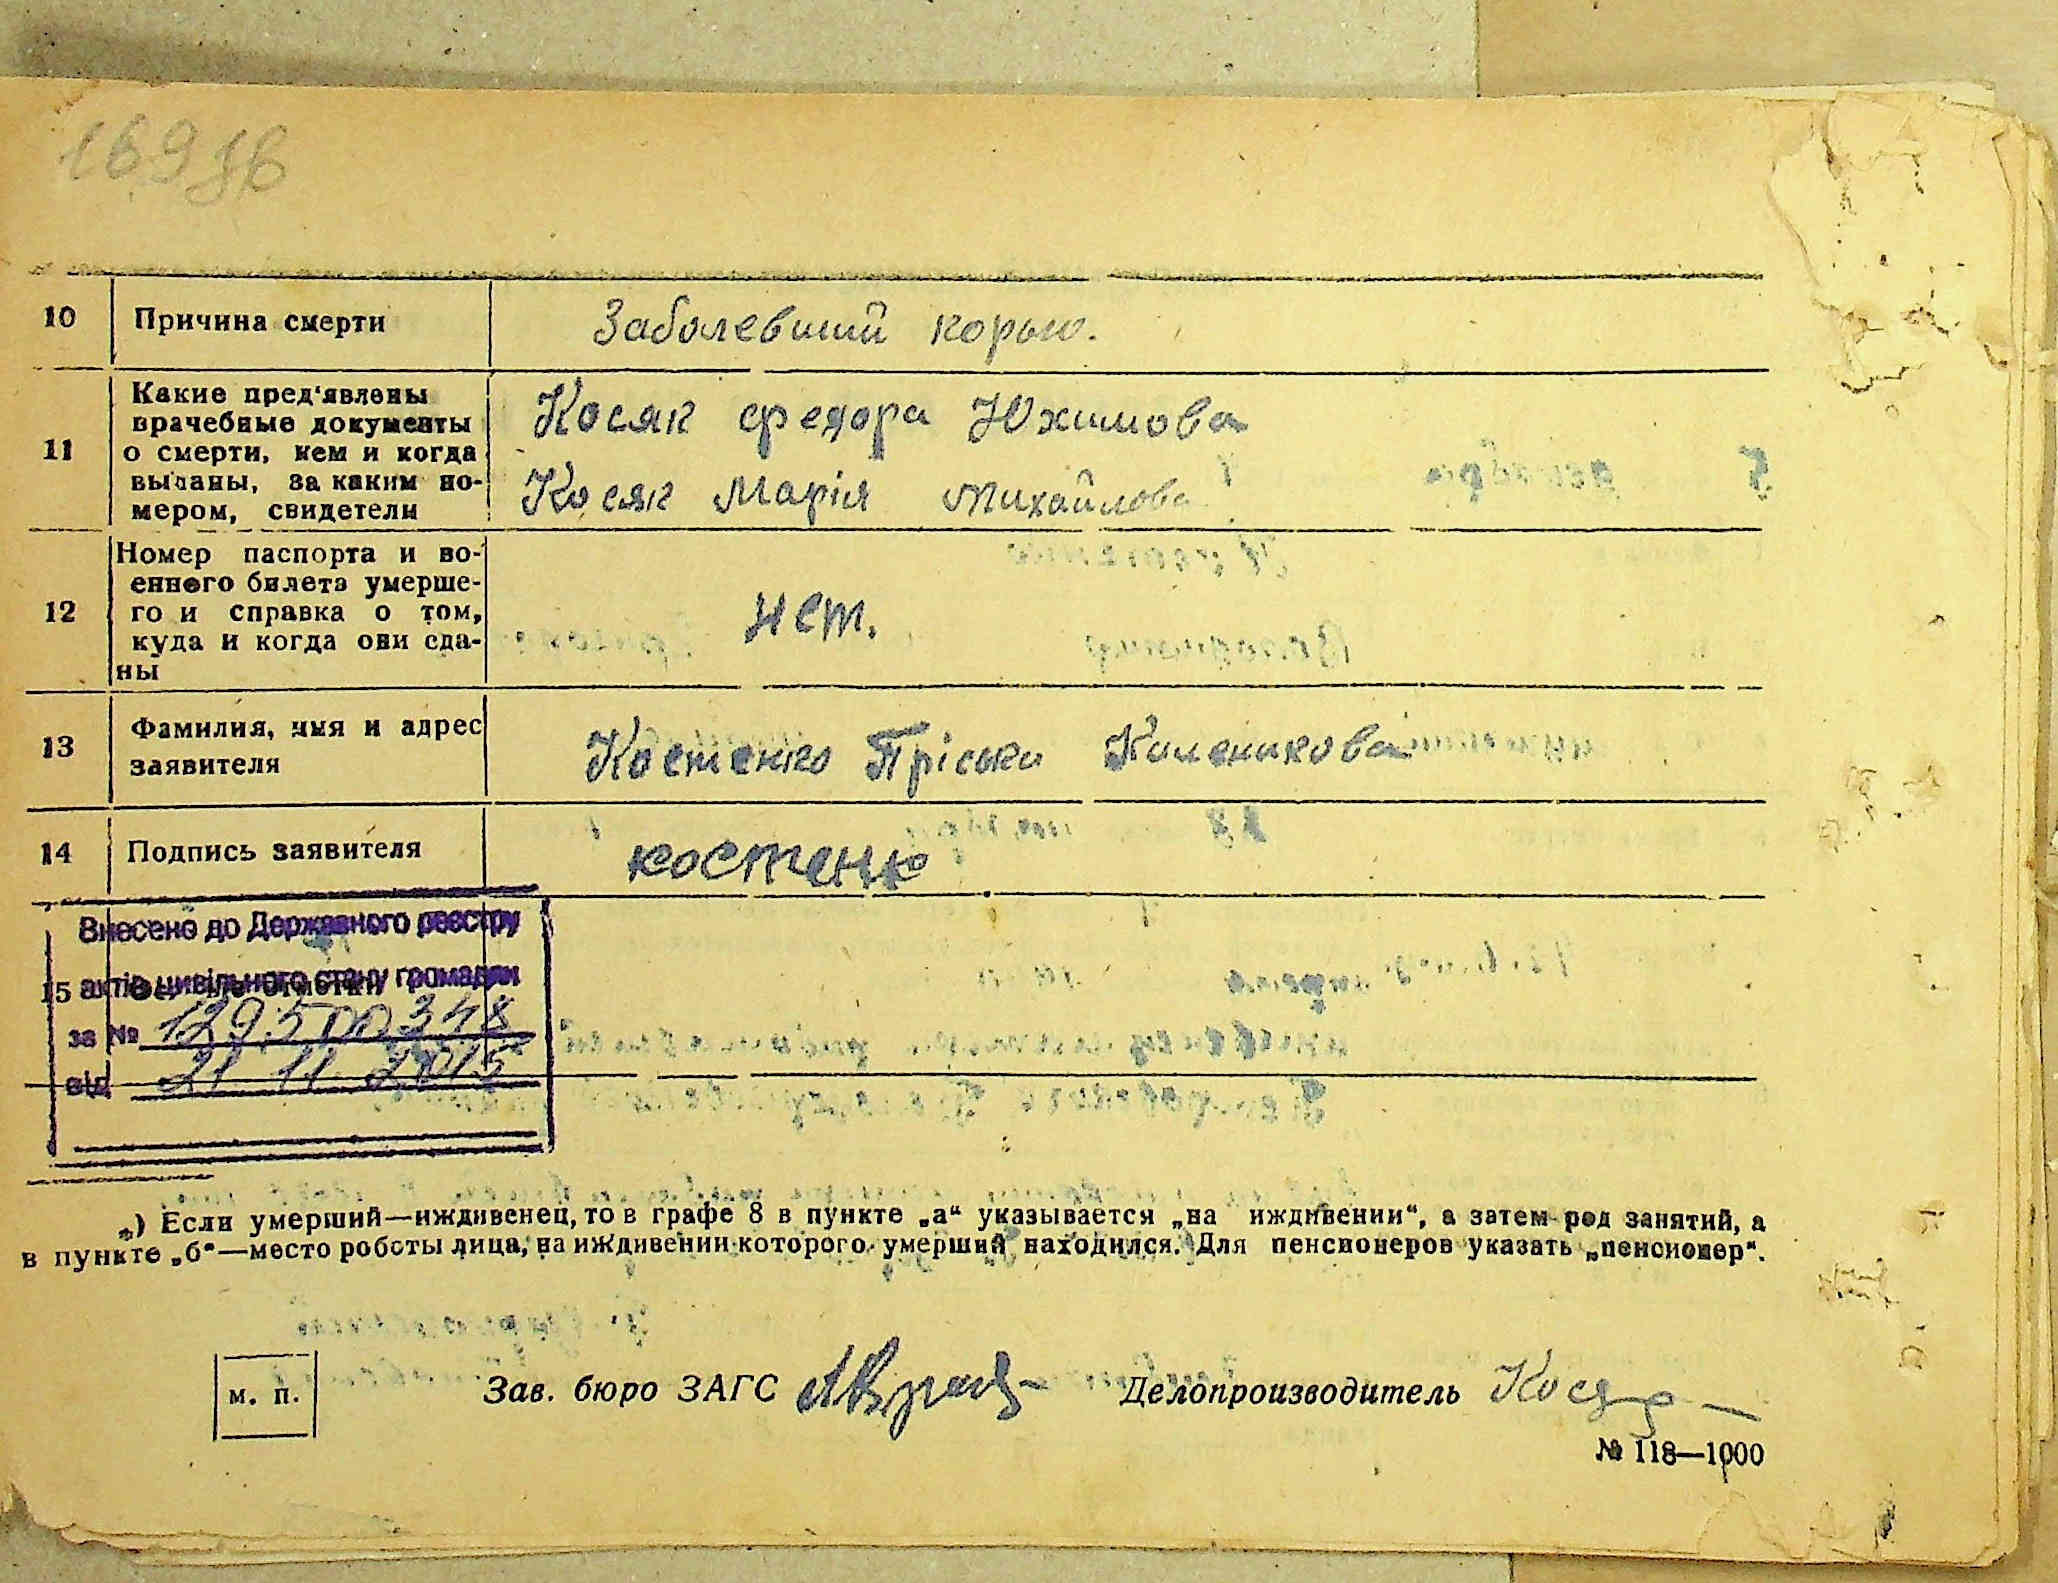 169
10 Причина смерти Заболевший корью.
11 Какие пред‘явлены
врачебные документы
о смерти, кем и когда
выданы, за каким но-
мером, свидетели
Косяк федора Юхимова
Косяк Марія Михайлова
12 Номер паспорта и во-
енного билета умерше-
го и справка о том,
куда и когда они сда-
ны
нет.
13 Фамилия, имя и адрес
заявителя
Костенко Пріська Каленикова
14 Подпись заявителя костенко
Внесено до Державного реєстру
15 актів цивільного стану громадян
за № 129500348
від 21 11 2015
*) Если умерший—иждивенец, то в графе 8 в пункте „а“ указывается „на иждивении“, а затем род занятий, а
в пункте „б“—место роботы лица, на иждивении которого умерший находился. Для пенсионеров указать „пенсионер“.
м. п. Зав. бюро ЗАГС Делопроизводитель
№ 118—1000